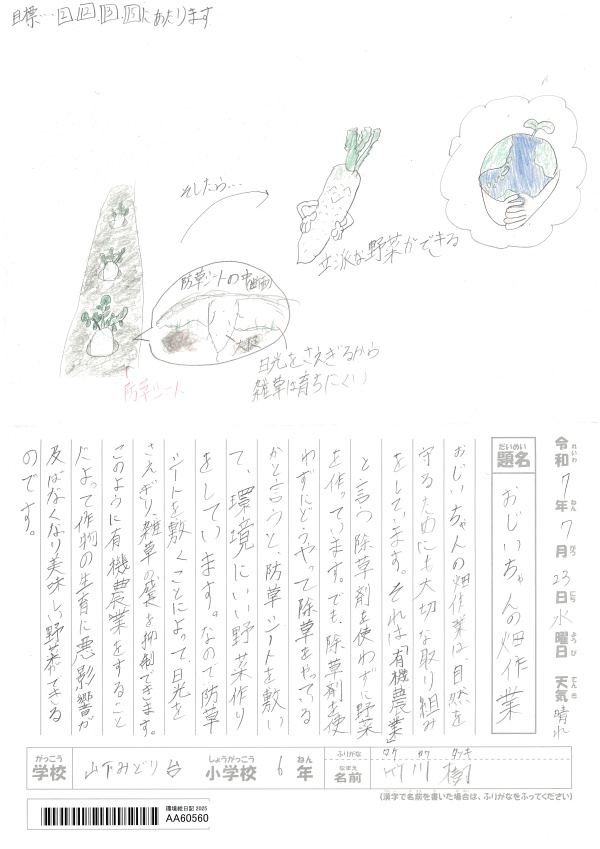 目標…2.12.13.15にあたります
そしたら…
立派な野菜ができる
防草シートの中(断面)
大根
日光をさえぎるから
雑草は育ちにくい
防草シート
れいわ ねん がつ にち ようび てんき
令和7年7月23日水曜日 天気 晴れ
だいめい
題名 おじいちゃんの畑作業
おじいちゃんの畑作業は、自然を
守るためにも大切な取り組み
をしています。それは「有機農業」
と言う除草剤を使わずに野菜
を作っています。でも、除草剤を使
わずにどうやって除草をやっている
かと言うと、防草シートを敷い
て、環境にいい野菜作り
をしています。なので防草
シートを敷くことによって、日光を
さえぎり、雑草の発芽を抑制できます。
このように有機農業をすること
によって作物の生育に悪影響が
及ばなくなり美味しい野菜ができる
のです。
がっこう しょうがっこう ねん
学校 山下みどり台 小学校 6年
ふりがな タケ カワ タツキ
なまえ
名前 竹川 樹
(漢字で名前を書いた場合は、ふりがなをふってください)
環境絵日記 2025
AA60560